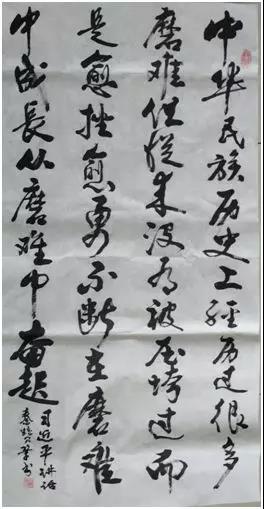 中华民族历史上经历过很多
磨难但从来没有被压垮过而
是愈挫愈勇不断在磨难
中成長从磨难中奋起
习近平讲话